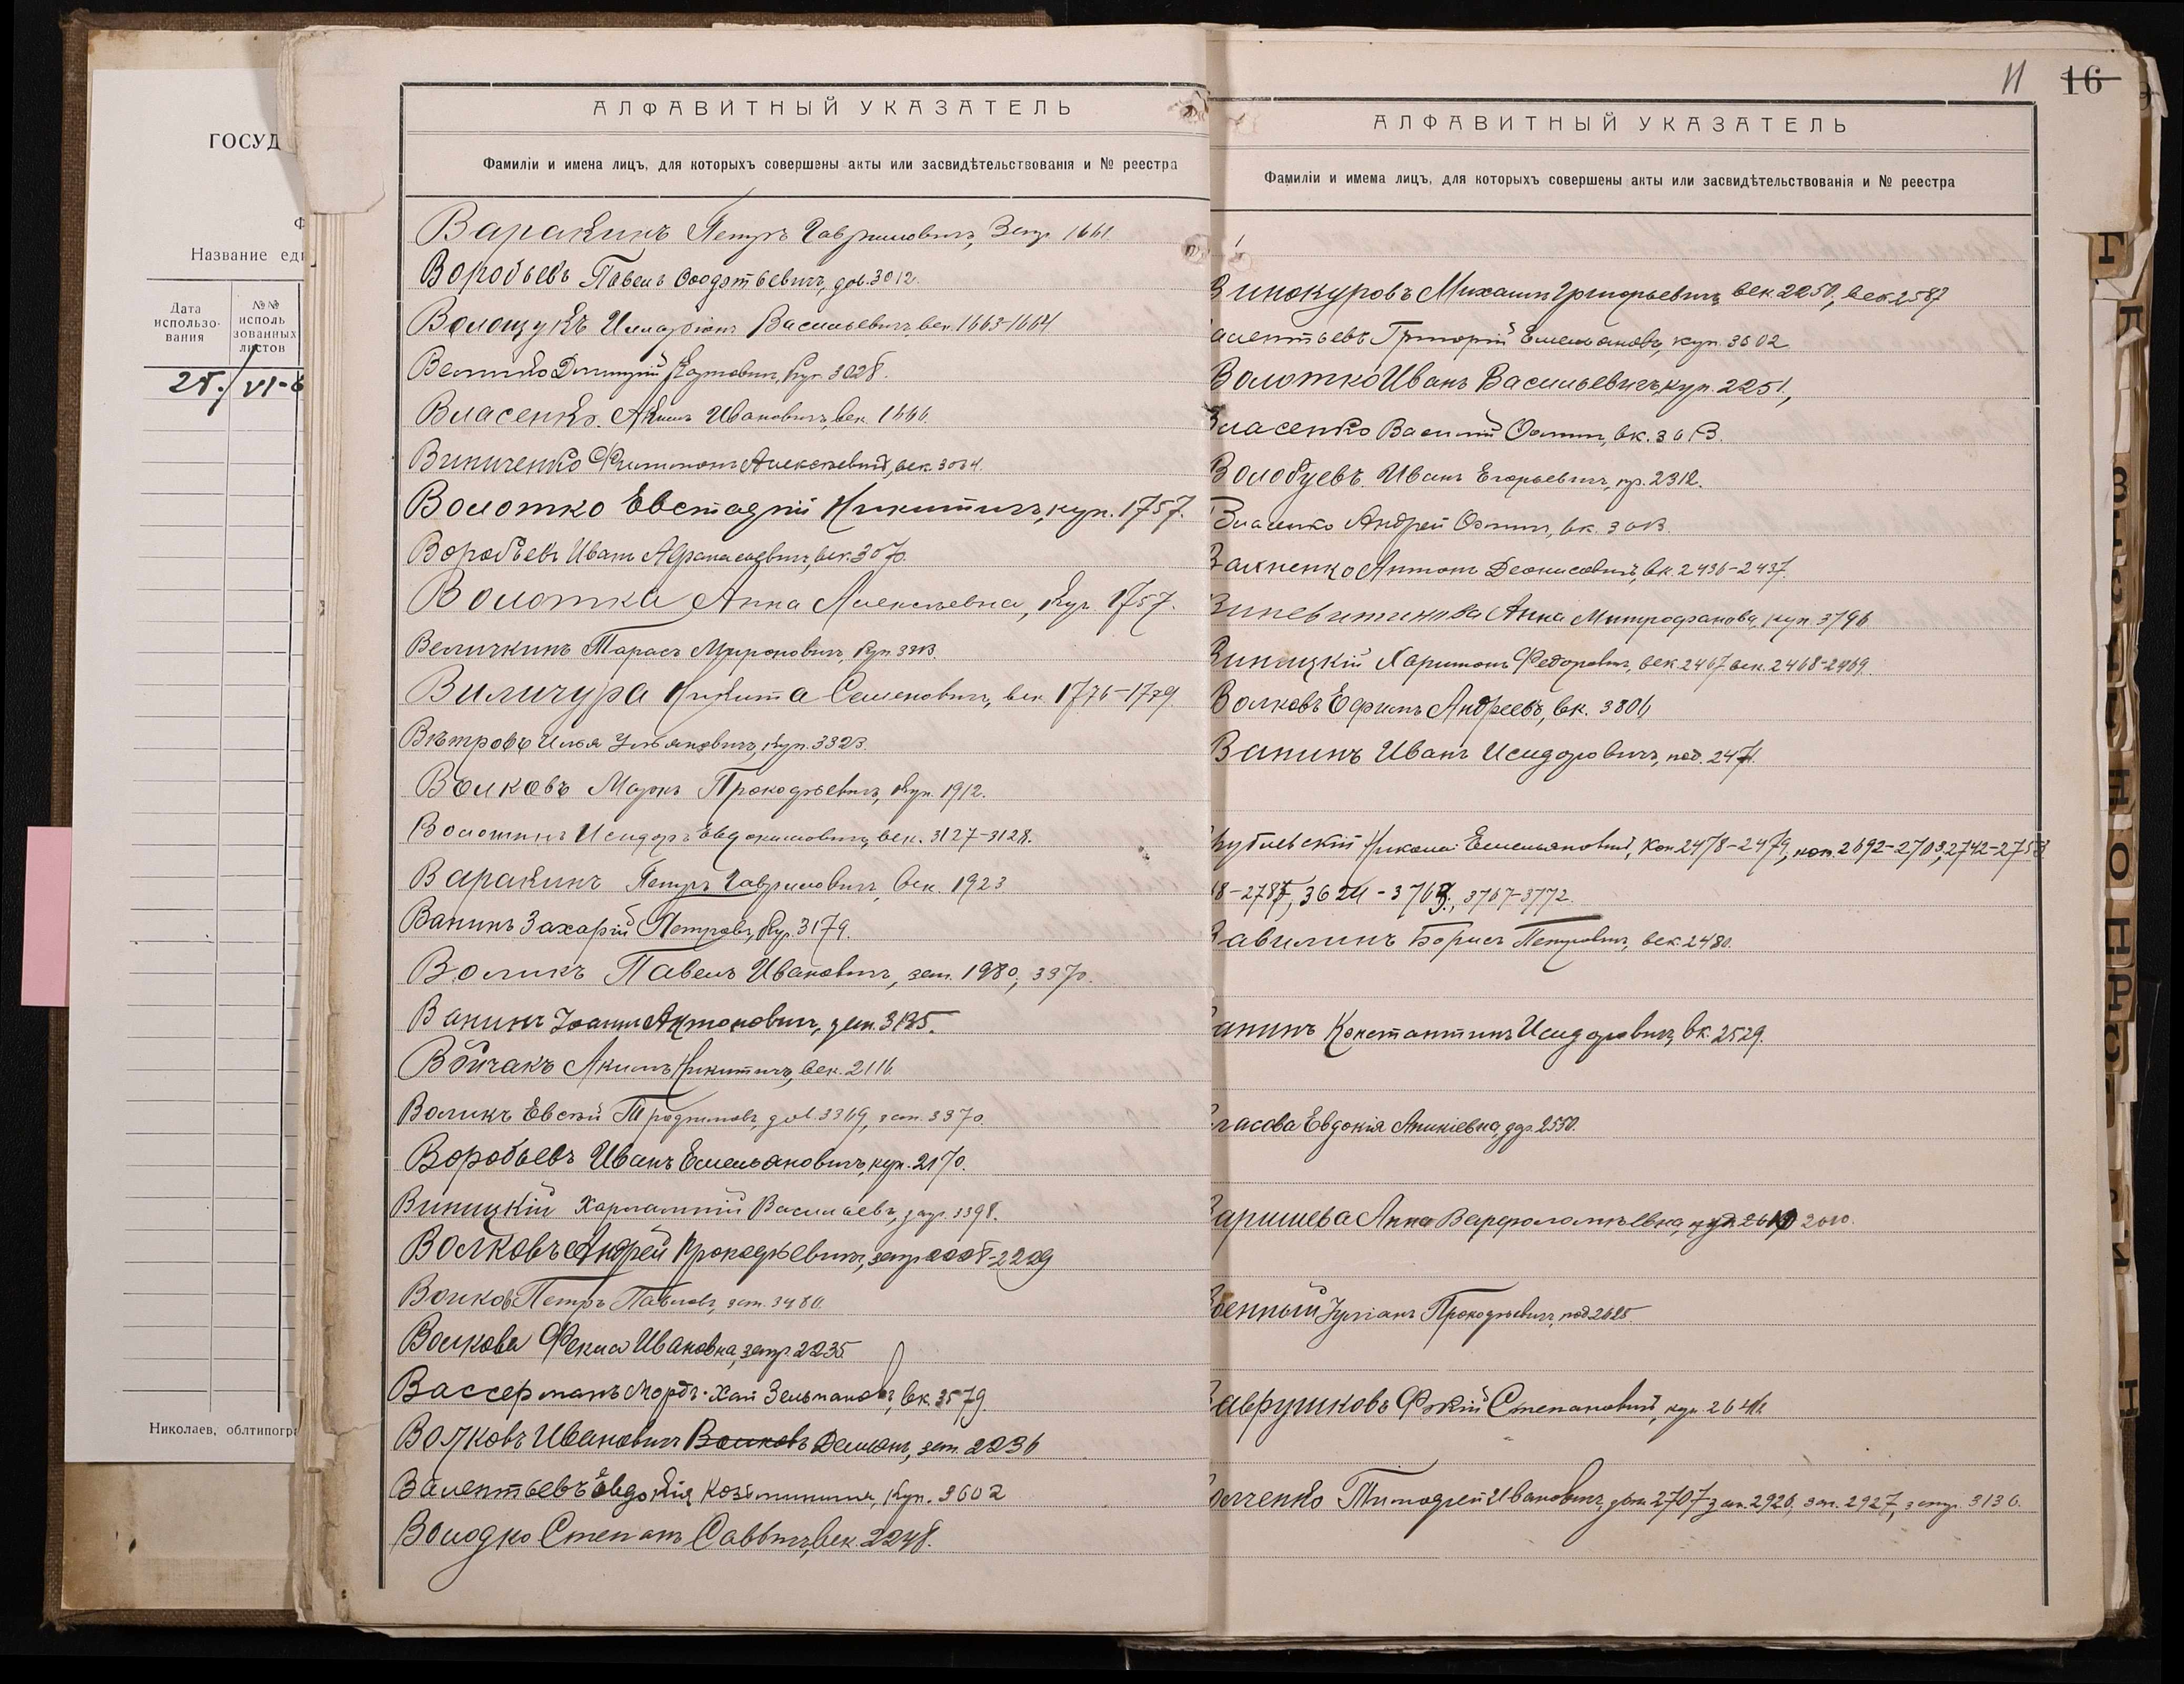 ГОСУД
Ф
Название еди
Дата использо-вания
№№ исполь зованных листов
25. VI-6
Николаев, облтипогр
АЛФАВИТНЫЙ УКАЗАТЕЛЬ
Фамиліи и имена лицъ, для которыхъ совершены акты или засвидѣтельствованія и № реестра
Варакинъ Петръ Гавриловичъ, Завр. 1661.
Воробьевъ Павелъ дов. 3012.
Волощукъ Илларіонъ Васильевичъ, век. 1663-1664
Дмитрій Карповичъ, Куп. 3028.
Власенко Акимъ Ивановичъ, век. 1666.
Виниченко Филимонъ Алексѣевичъ, век. 3034.
Волотко Евстафій Никитичъ, куп. 1757.
Воробьевъ Иванъ Афанасьевичъ, век. 3070.
Волотка Анна Алексѣевна, Куп. 1757.
Величкинъ Тарасъ Мироновичъ, Куп. 3313.
Виличура Никита Семеновичъ, век. 1776-1779
Вѣтровъ Илья Ульяновичъ, Куп. 3323.
Волковъ Маркъ Прокофьевичъ, Куп. 1912.
Волошинъ Исидоръ Евдокимовичъ, век. 3127-3128.
Варакинъ Петръ Гавриловичъ, век. 1923
Ванинъ Захарій Петровъ, Куп. 3179.
Воликъ Павелъ Ивановичъ, зал. 1980; 3370.
Ванинъ Іоаннъ Антоновичъ, зал. 3135.
Войчакъ Акимъ Никитичъ, век. 2116
Воликъ Евсей Трофимовъ, дов. 3369, зал. 3370.
Воробьевъ Иванъ Емельяновичъ, куп. 2170.
Виницкій Харлампій Васильевъ, 3398.
Волковъ Андрей Прокофьевичъ, 2209
Волковъ Петръ Павловъ, зал. 3480.
Волкова Фекла Ивановна, завр. 2235
Вассерманъ Мордъ-Хаи Зельмановъ, вк. 3579
Волковъ Ивановичъ Волковъ Демьянъ, зал. 2236
Валентьевъ Евдокія Козьминична, Куп. 3602
Володко Степанъ Саввичъ, век. 2248.
11 16
АЛФАВИТНЫЙ УКАЗАТЕЛЬ
Фамиліи и имема лицъ, для которыхъ совершены акты или засвидѣтельствованія и № реестра
Винокуровъ Михаилъ Григорьевичъ век. 2250, век 2587
алентьевъ Григорій Емельяновъ, куп. 3602
Волотко Иванъ Васильевичъ, куп. 2251,
Власенко Василій вк. 3013.
Волобуевъ Иванъ Егорьевичъ, пр. 2312.
Андрей вк. 3013.
Вакненко Антонъ Деонисовичъ, вк. 2436-2437.
Анна Митрофанова, куп. 3796
Виницкій Харитонъ Федоровичъ, век 2467 век. 2468-2469.
Волковъ Ефимъ Андреевъ, вк. 3806
Ванинъ Иванъ Исидоровичъ, пов. 2471.
Врублевскій Николай Емельяновичъ, Коп 2478-2479, коп. 2692-2703, 2742-2753
8-2787, 3624-3763; 3767-3772.
Вавилинъ Борисъ Петровичъ, век 2480.
анинъ Константинъ Исидоровичъ, вк. 2529.
ласова Евдокія Аникіевна, дар. 2550.
аришева Анна Варфоломѣевна, 2610.
Военный Іуліанъ Прокофьевичъ, пов 2625
аврушковъ Степановичъ, куп. 264
олченко Тимофей Ивановичъ, 2707 зал. 2926, зал. 2927, завр. 3136.